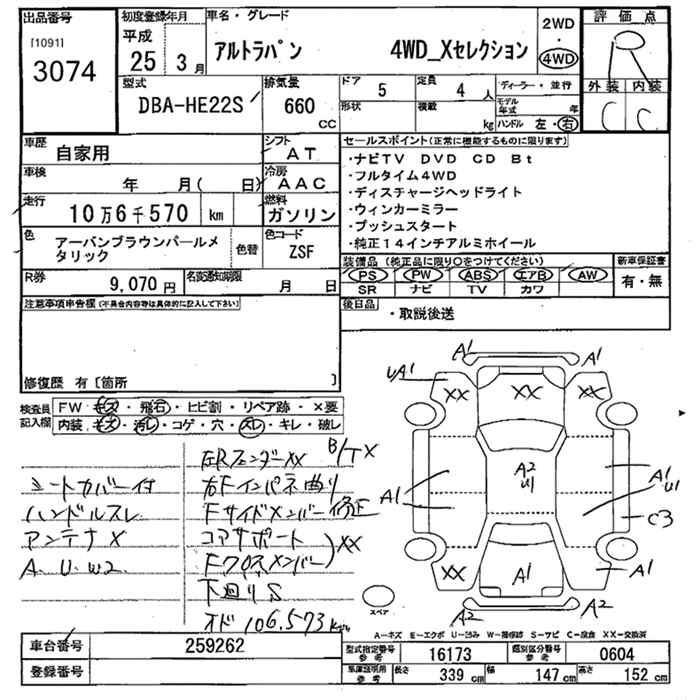 出品番号 初度登録年月 車名・グレード 2WD ・ 4WD 評価点
[1091] 3074 平成 25年 3月 アルトラパン 4WD_Xセレクション R
外装 内装
C C
型式 排気量 ドア 5 定員 4人 ディーラー・並行
DBA-HE22S 660 CC 形状 積載 kg モデル年式 年
ハンドル 左・右
車歴 自家用 シフト AT セールスポイント(正常に機能するものに限ります)
車検 年 月( 日) 冷房 AAC ・ナビTV DVD CD Bt
・フルタイム4WD
走行 10万6千570 km 燃料 ガソリン ・ディスチャージヘッドライト
・ウィンカーミラー
色 アーバンブラウンパールメタリック 色替 色コード ZSF ・プッシュスタート
・純正14インチアルミホイール
R券 9,070円 名変通知期限 月 日 装備品(純正品に限り○をつけてください) 新車保証書
PS PW ABS エアB AW 有・無
SR ナビ TV カワ
注意事項申告欄(不具合内容等は具体的に記入して下さい) 後日品 ・取説後送
修復歴 有〔箇所 〕
検査員記入欄 FW キズ・飛石・ヒビ割・リペア跡・×要
内装 キズ・汚レ・コゲ・穴・スレ・キレ・破レ
シートカバー付
ハンドルスレ
アンテナX
A. U. W2
左Rフェンダー XX B/T X
右Fインパネ曲り
Fサイドメンバー修正
コアサポート
Fクロスメンバー) XX
下廻りS
オド 106,573km
A1 A1
UA1 A1
XX XX XX
A2
U1
A1 A1
U1
C3
XX A1 A1
A2 A2
スペア
A-キズ E-エクボ U-凹み W-補修跡 S-サビ C-腐食 XX-交換済
車台番号 259262 型式指定番号 参考 16173 類別区分番号 参考 0604
登録番号 車庫証明用 参考 長さ 339 cm 幅 147 cm 高さ 152 cm